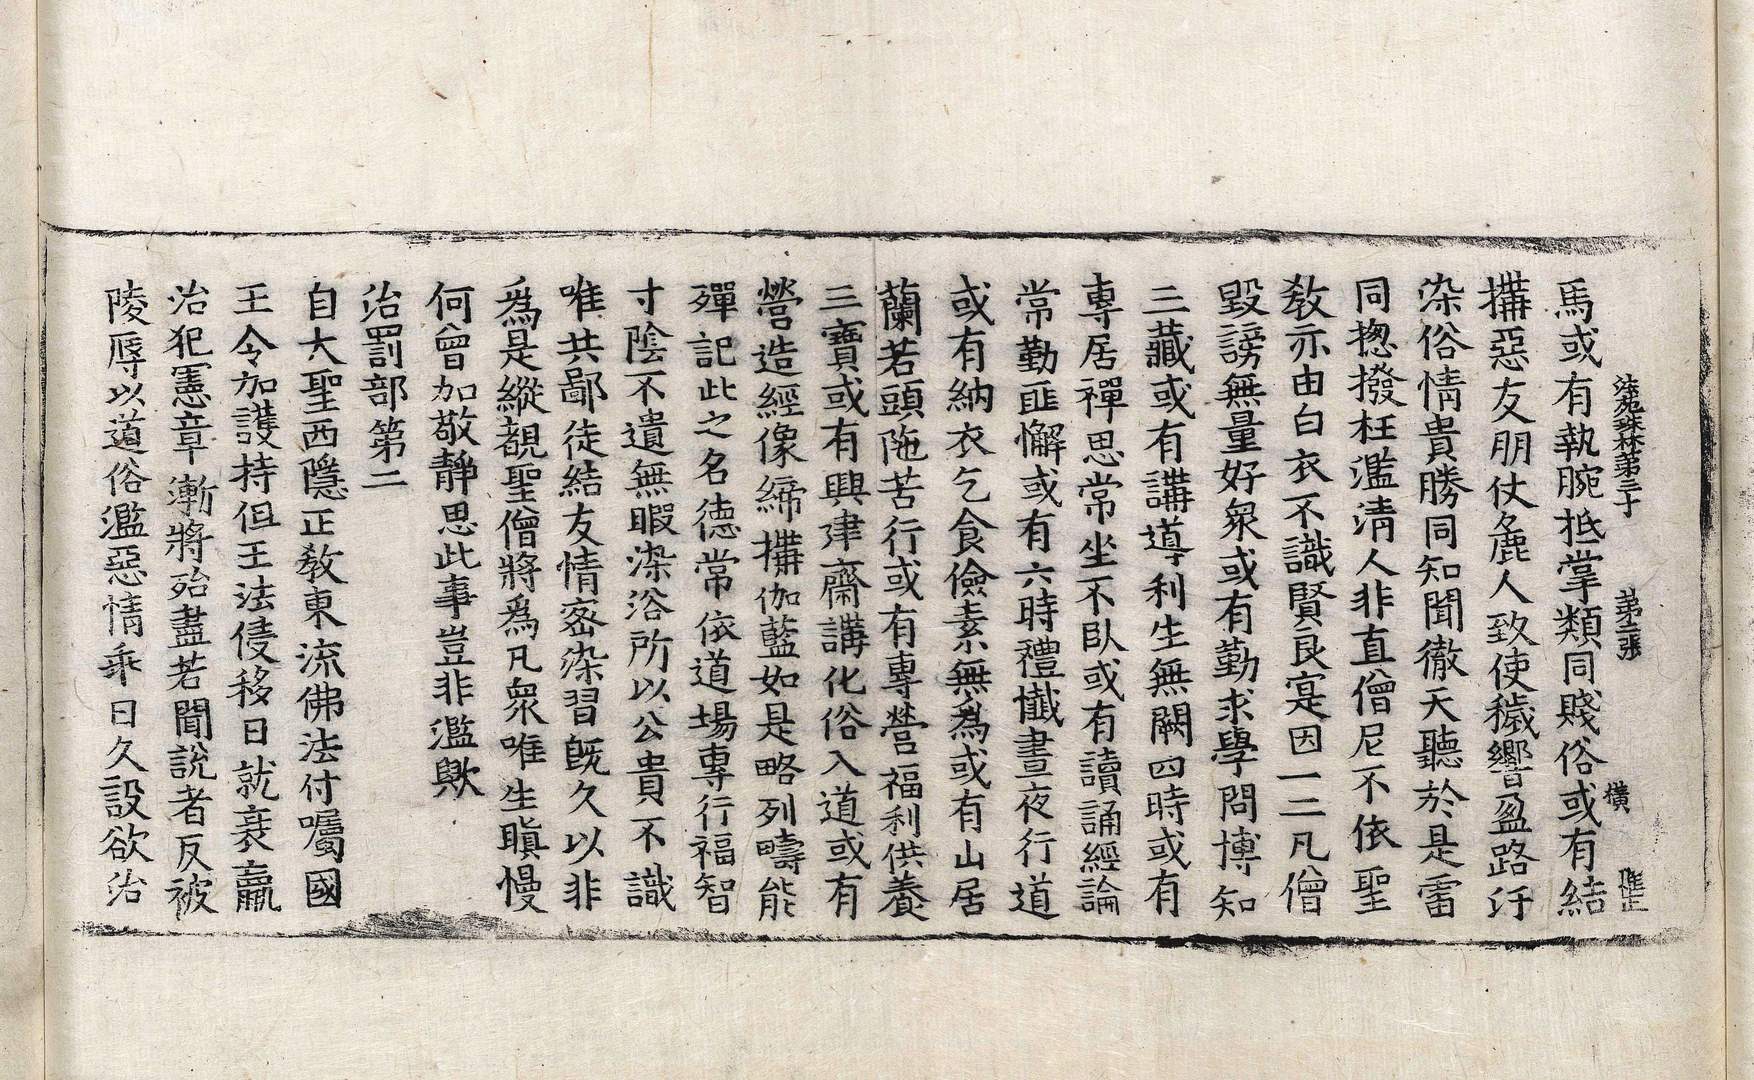 法苑珠林第三十 第二張 橫
馬或有執腕抵掌類同賤俗或有結
搆惡友朋仗麁人致使穢響盈路汙
染俗情貴勝同知聞徹天聽於是雷
同揔撥枉濫清人非直僧尼不依聖
教亦由白衣不識賢良寔因一二凡僧
毀謗無量好衆或有勤求學問博知
三藏或有講導利生無闕四時或有
專居禪思常坐不臥或有讀誦經論
常勤匪懈或有六時禮懺晝夜行道
或有納衣乞食儉素無爲或有山居
蘭若頭陁苦行或有專營福利供養
三寶或有興建齋講化俗入道或有
營造經像締搆伽藍如是略列疇能
殫記此之名德常依道場專行福智
寸陰不遺無暇染浴所以公貴不識
唯共鄙徒結友情密染習旣久以非
爲是縱覩聖僧將爲凡衆唯生瞋慢
何曾加敬靜思此事豈非濫歟
治罰部第二
自大聖西隱正教東流佛法付囑國
王令加護持但王法侵移日就衰羸
治犯憲章漸將殆盡若聞說者反被
陵辱以道俗濫惡情乖日久設欲治